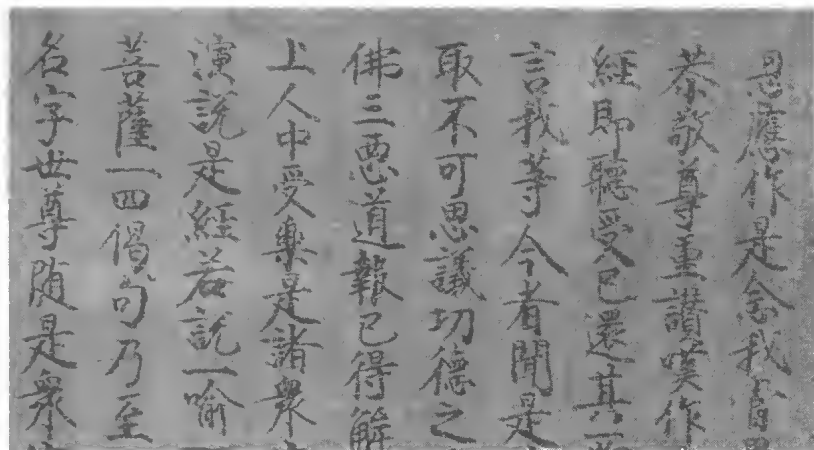 恩應作是念我
恭敬尊重讃嘆作
經即聽受已還其
言我等今者聞是
取不可思議切德之
佛三惡道報已得解
上人中受樂是諸衆
演說是經若說一喻
菩薩一四偈句乃至
名字世尊随是衆